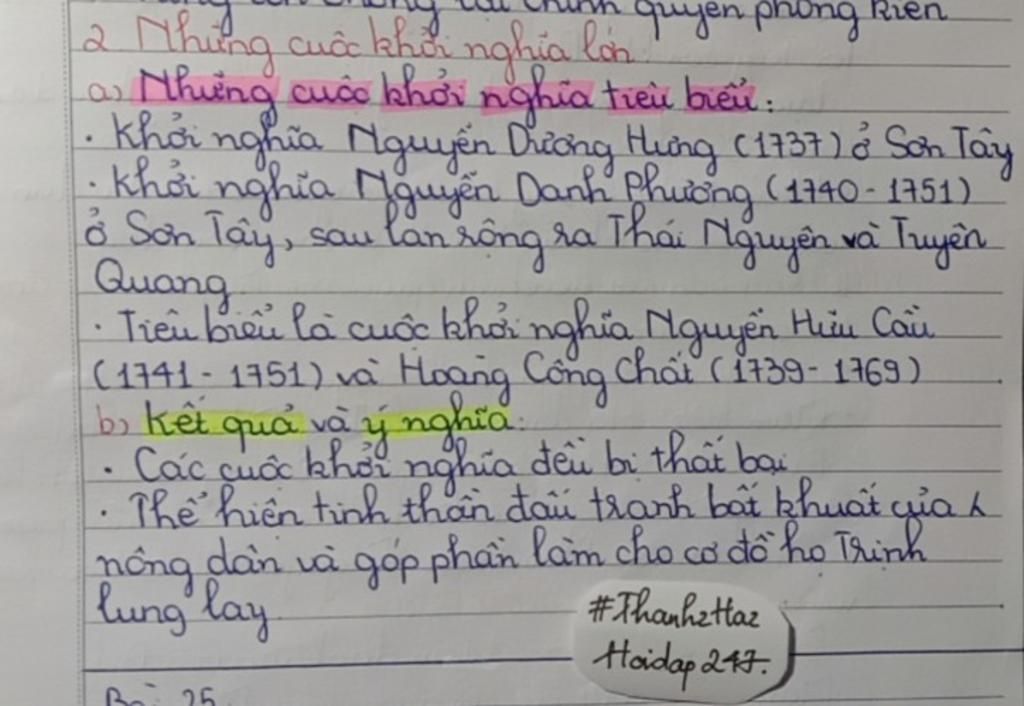 chính quyền phong kiến
2 Những cuộc khởi nghĩa lớn
a) Những cuộc khởi nghĩa tiêu biểu:
· Khởi nghĩa Nguyễn Dương Hưng (1737) ở Sơn Tây
· Khởi nghĩa Nguyễn Danh Phương (1740 - 1751)
ở Sơn Tây, sau lan rộng ra Thái Nguyên và Tuyên
Quang
· Tiêu biểu là cuộc khởi nghĩa Nguyễn Hữu Cầu
(1741 - 1751) và Hoàng Công Chất (1739 - 1769)
b) Kết quả và ý nghĩa:
· Các cuộc khởi nghĩa đều bị thất bại
· Thể hiện tinh thần đấu tranh bất khuất của
nông dân và góp phần làm cho cơ đồ họ Trịnh
lung lay
#Thanh2Ha2
Hoidap247.
25